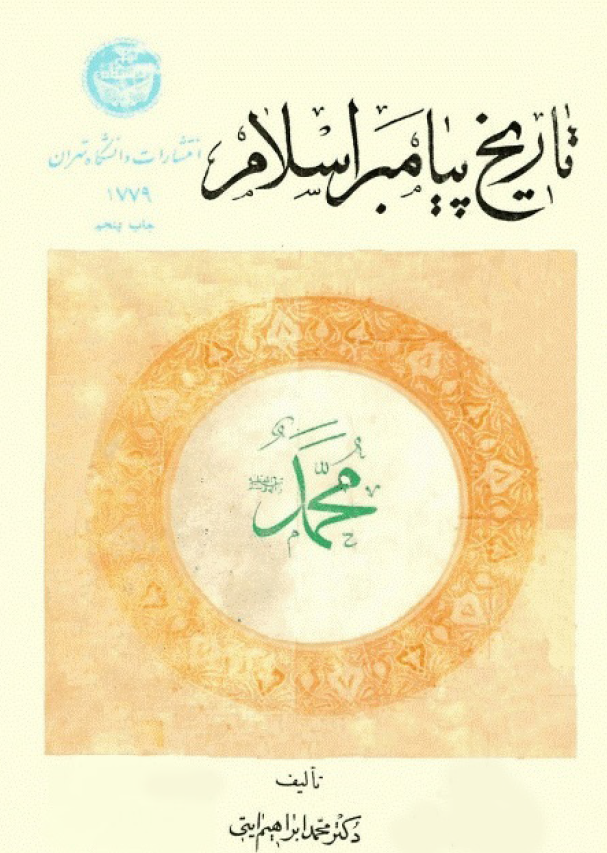 تاریخ پیامبر اسلام
انتشارات دانشگاه تهران
۱۷۷۹
چاپ پنجم
محمد
تألیف
دکتر محمد ابراهیم آیتی